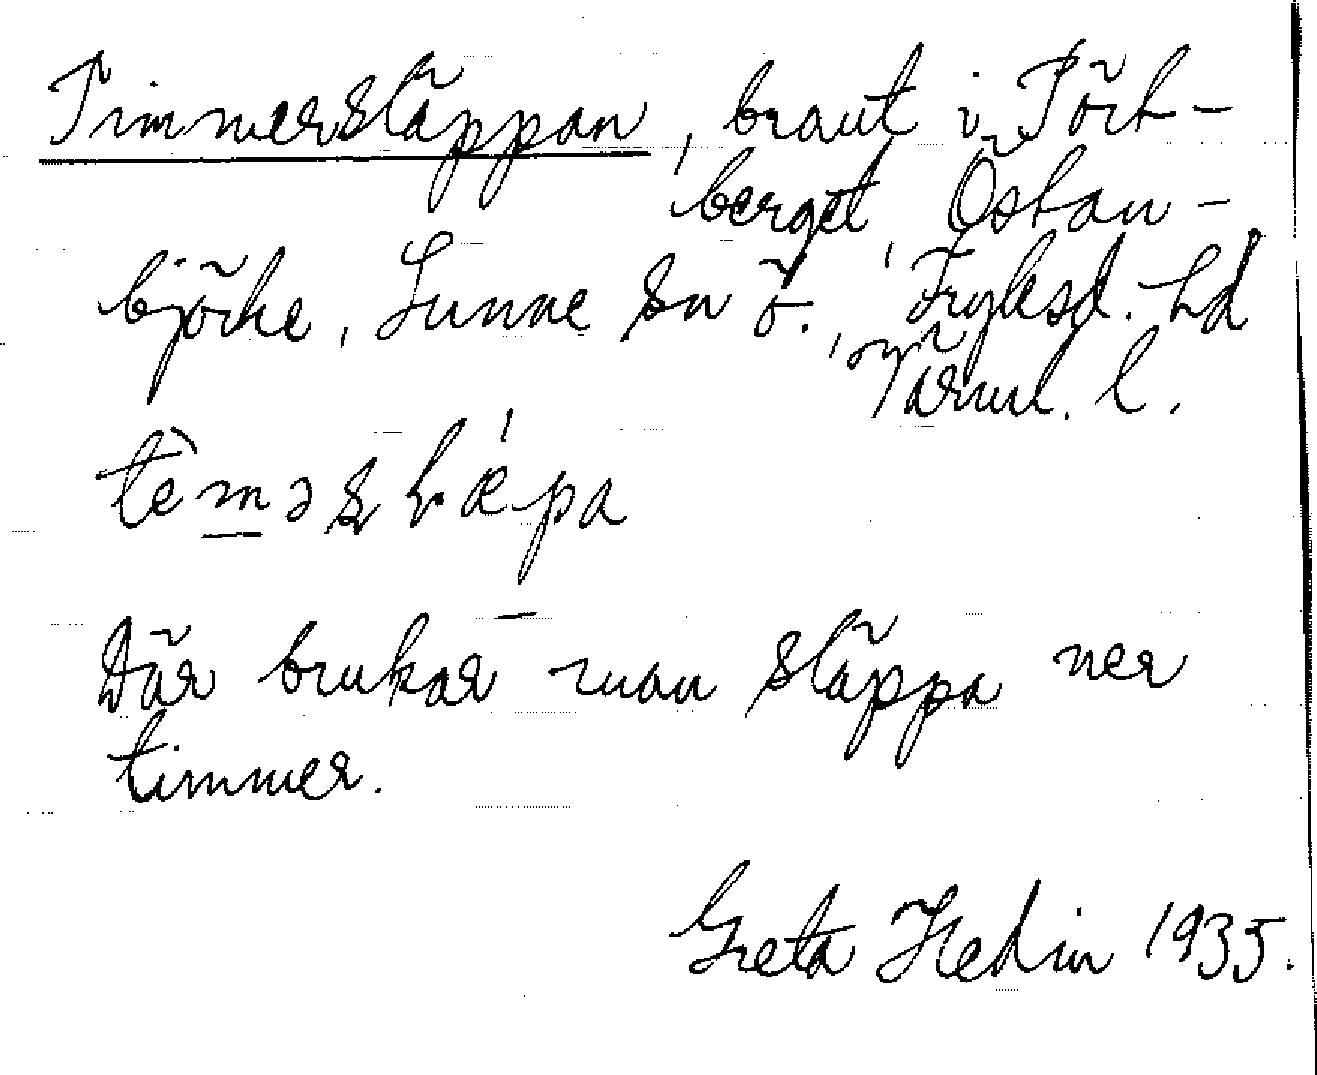 Timmersläppan, brant i Tört-
berget, Östan-
björke, Sunne sn ö., Fryksd. hd
Värml. l.
tèməʂɽǽpa
Där brukar man släppa ner
timmer.
Greta Hedin 1935.